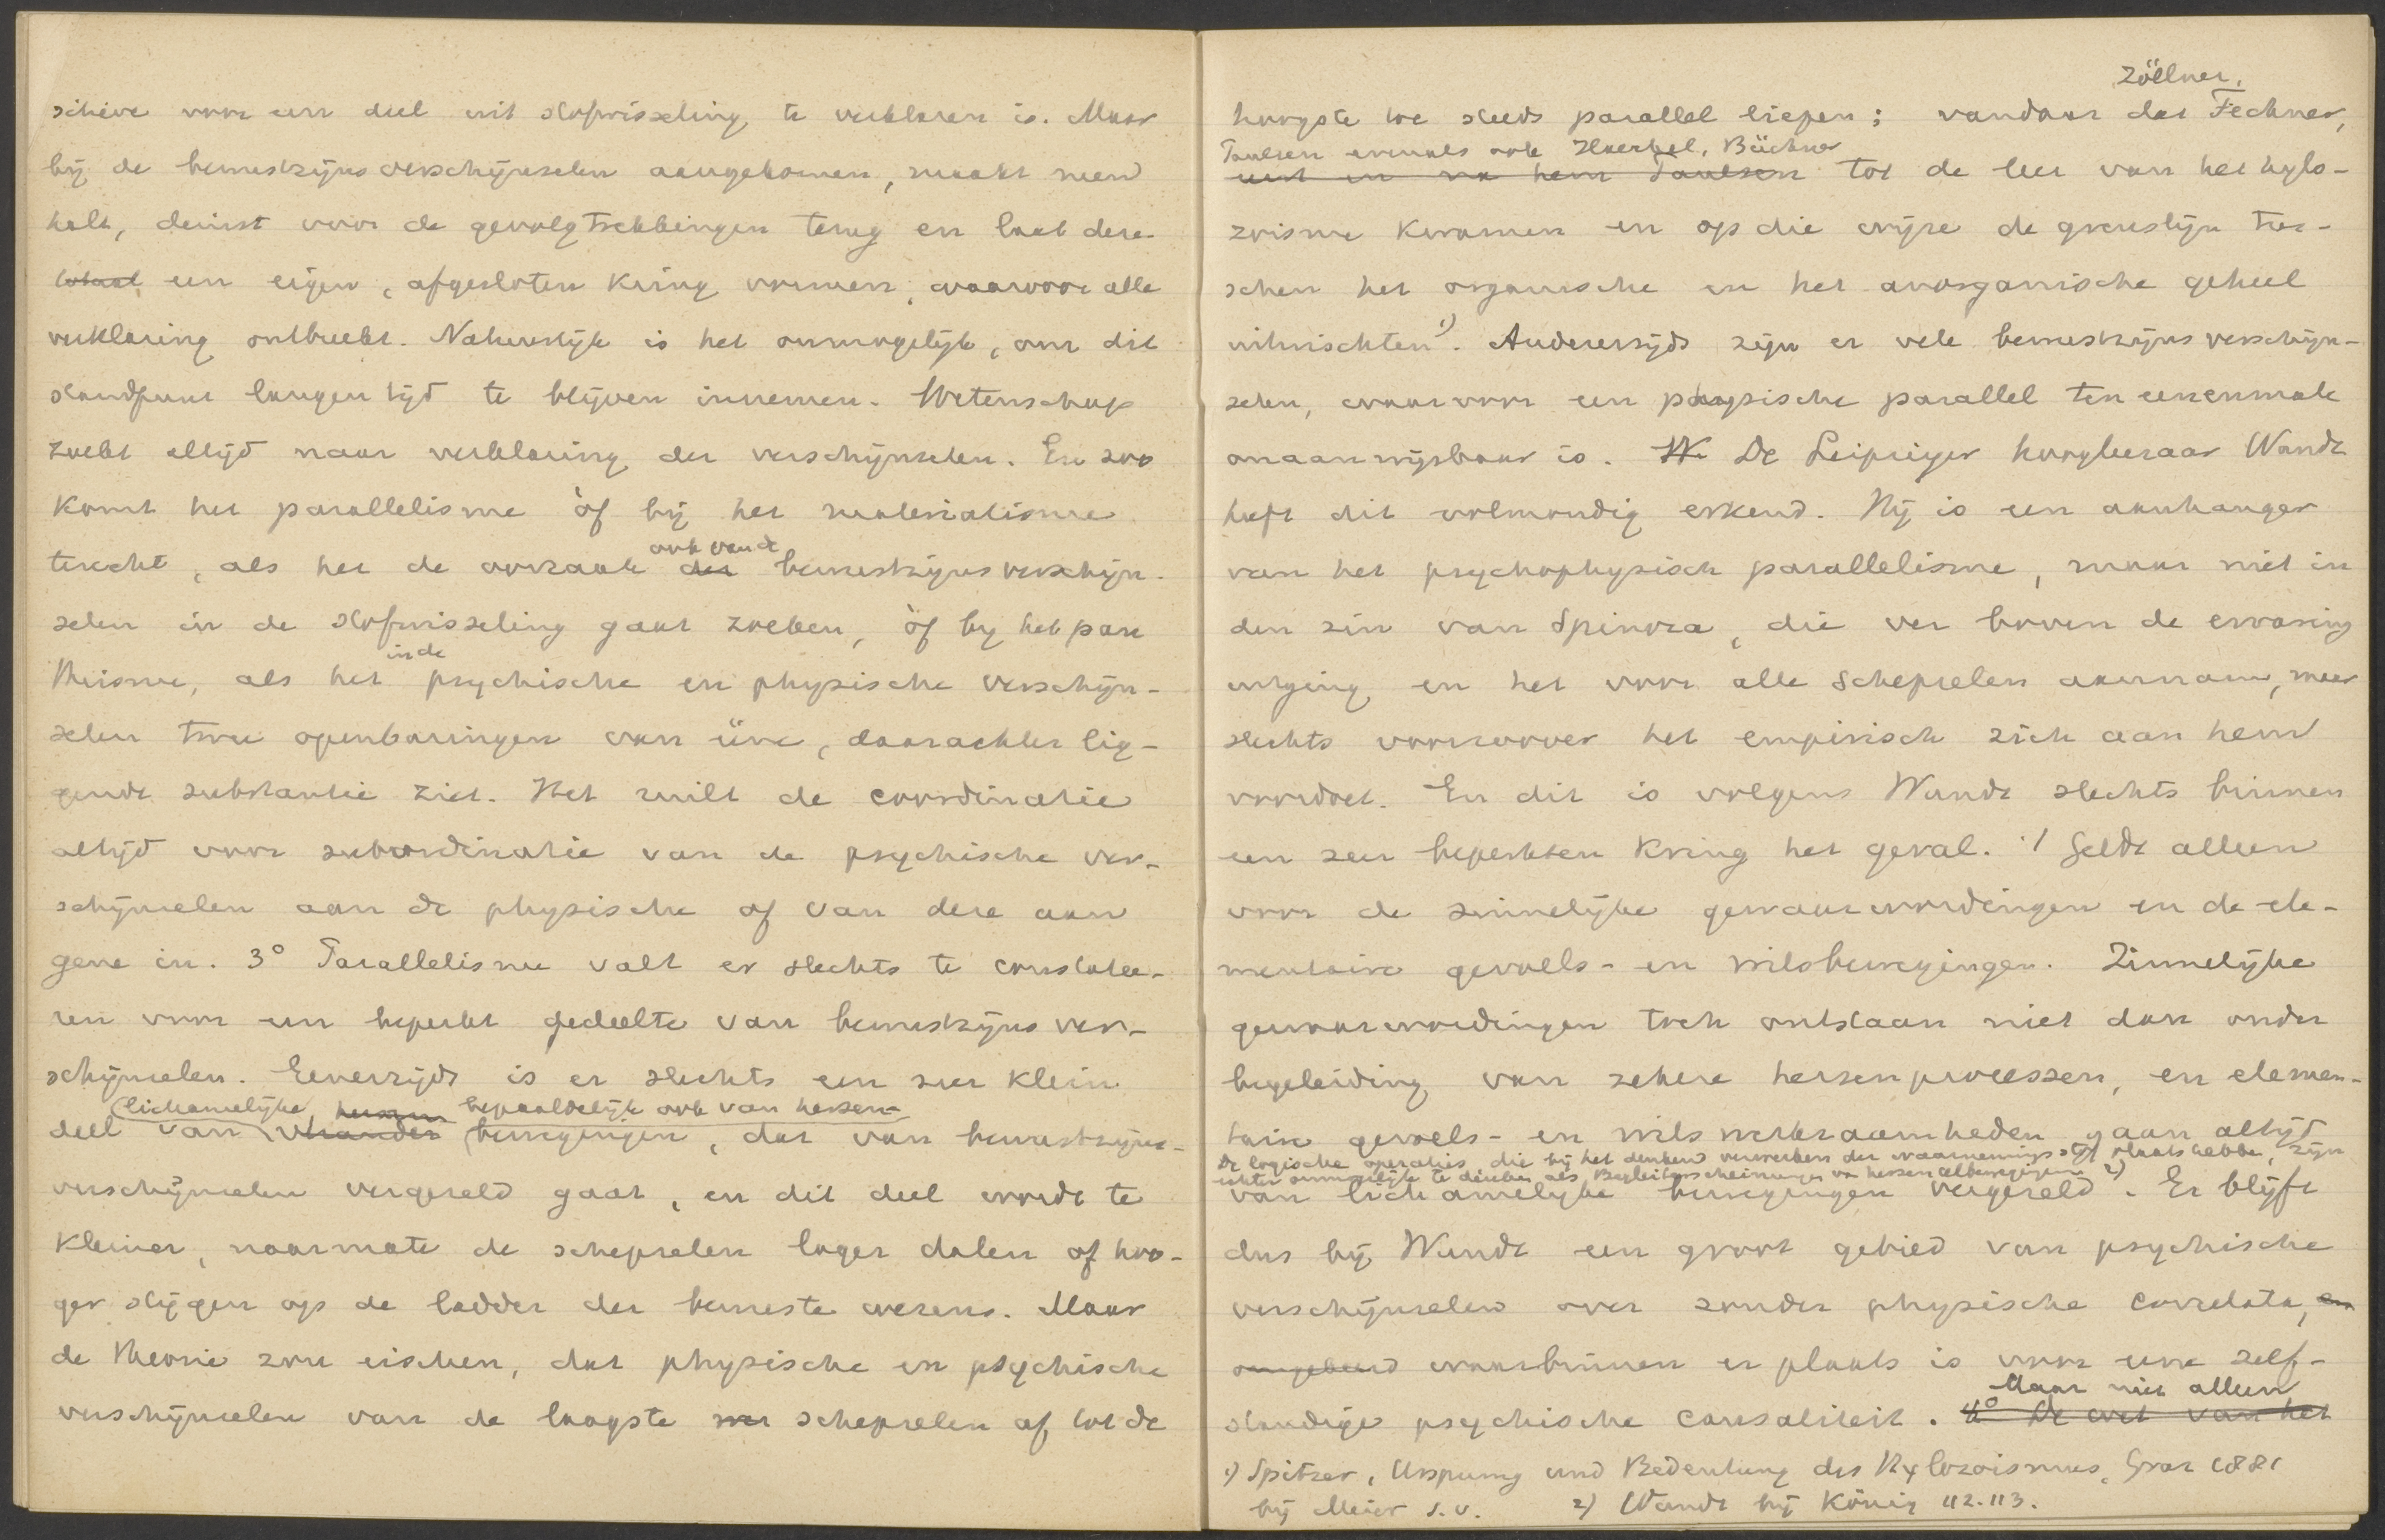 schive voor een deel uit stofwisseling te verklaren is. Maar
bij de bewustzijnsverschijnselen aangekomen, maakt men
halt, deinst voor de gevolgtrekkingen terug en laat deze
een eigen, afgesloten kring vormen, waarvoor alle
verklaring ontbreekt. Natuurlijk is het onmogelijk, om dit
standpunt langen tijd te blijven innemen. Wetenschap
zoekt altijd naar verklaring der verschijnselen. En zoo
komt het parallelisme òf bij het materialisme
ook van de
terecht, als het de oorzaak der bewustzijnsverschijn-
selen in de stofwisseling gaat zoeken, òf bij het pan
in de
theisme, als het psychische en physische verschijn-
selen twee openbaringen van ééne, daarachter lig-
gende substantie ziet. Het ruilt de coordinatie
altijd voor subordinatie van de psychische ver-
schijnselen aan de physische of van deze aan
gene in. 3° Parallelisme valt er slechts te constatee-
ren voor een beperkt gedeelte van bewustzijnsver-
schijnselen. Eenerzijds is er slechts een zeer klein
lichamelijke, hersen bepaaldelijk ook van hersen-
deel van bewegingen, dat van bewustzijns-
verschijnselen vergezeld gaat, en dit deel wordt te
kleiner, naarmate de schepselen lager dalen of hoo-
ger stijgen op de ladder der bewuste wezens. Maar
de theorie zou eischen, dat physische en psychische
verschijnselen van de laagste schepselen af tot de
Zöllner,
hoogste toe steeds parallel liepen; vandaar dat Fechner,
Paulsen evenals ook Haeckel, Büchner
en na hem Paulsen tot de leer van het hylo-
zoisme kwamen en op die wijze de grenslijn tus-
schen het organische en het anorganische geheel
uitwischten 1). Anderzijds zijn er vele bewustzijnsverschijn-
selen, waarvoor een physische parallel ten eenenmale
onaanwijsbaar is. W De Leipziger hoogleeraar Wundt
heeft dit volmondig erkend. Hij is een aanhanger
van het psychophysisch parallelisme, maar niet in
den zin van Spinoza, die ver boven de ervaring
uitging en het voor alle schepselen aannam, maar
slechts voorzoover het empirisch zich aan hem
voordoet. En dit is volgens Wundt slechts binnen
een zeer beperkten kring het geval. 't Geldt alleen
voor de zinnelijke gewaarwordingen en de ele-
mentaire gevoels- en wilsbewegingen. Zinnelijke
gewaarwordingen toch ontstaan niet dan onder
begeleiding van zekere hersenprocessen, en elemen-
taire gevoels- en wilswerkzaamheden gaan altijd
De logische operaties, die bij het denkend verwerken der waarnemingsstof plaats hebben, zijn
echter onmogelijk te denken als Begleiterscheinungen van hersencelbewegingen 2)
van lichamelijke bewegingen vergezeld. Er blijft
dus bij Wundt een groot gebied van psychische
verschijnselen over zonder physische correlata, en
waarbinnen er plaats is voor eene zelf-
Maar niet alleen
standige psychische causaliteit. 4° De wet van het
1) Spitzer, Ursprung und Bedeutung des Hylozoismus, Graz 1881
bij Meier s.v. 2) Wundt bij König 112.113.